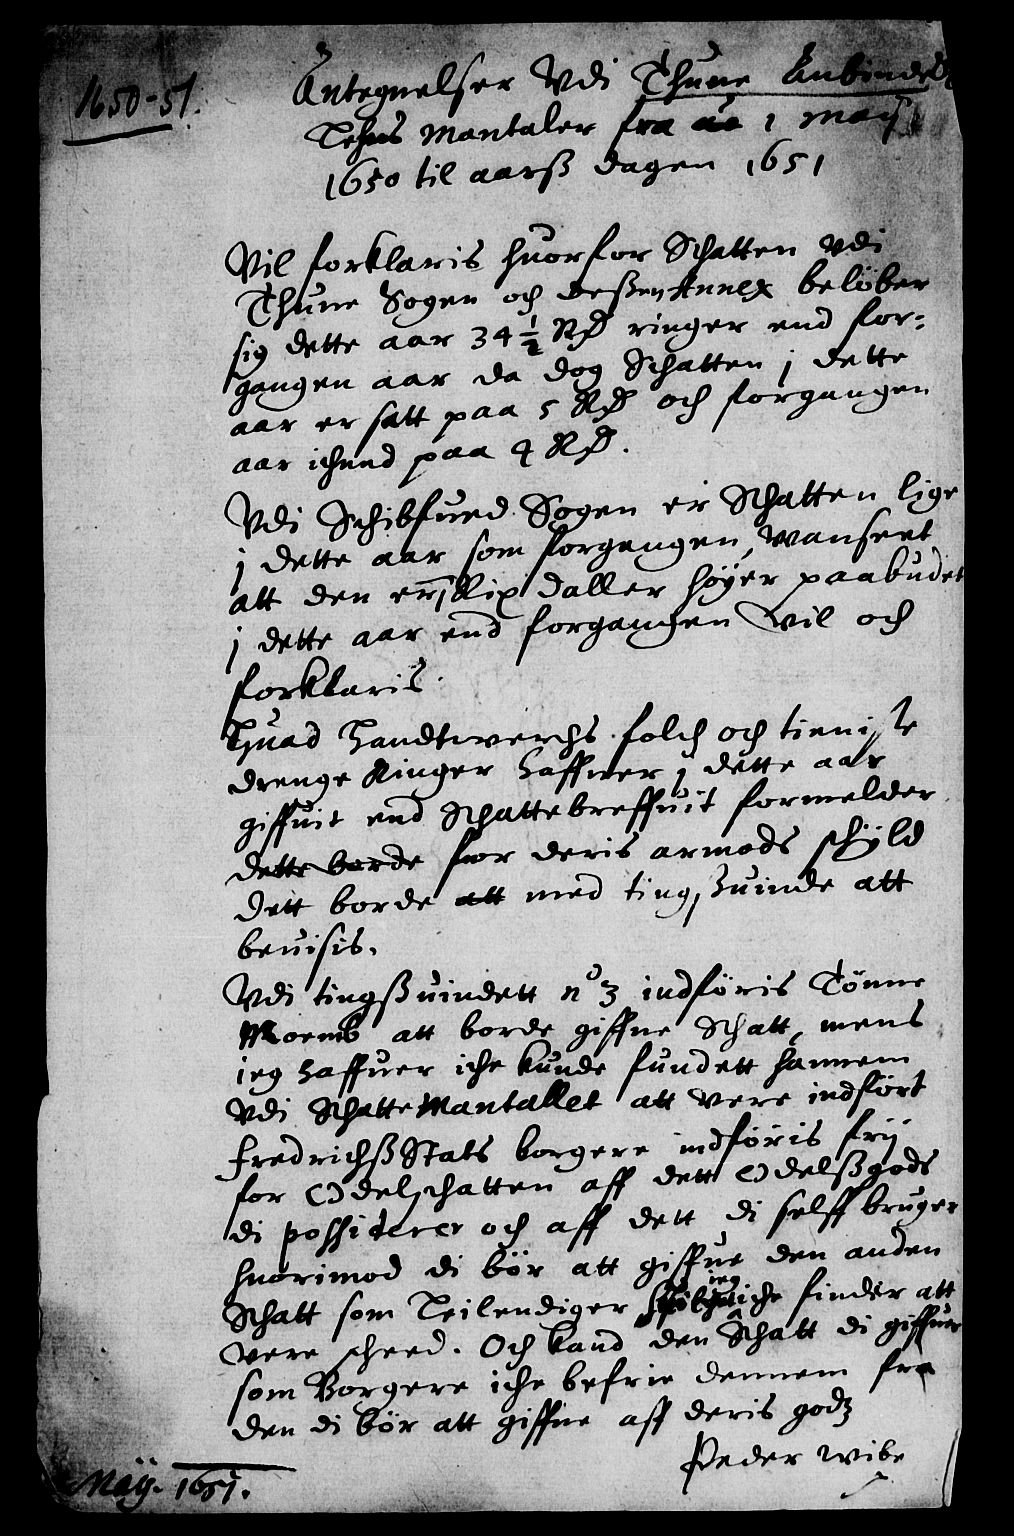 1650-51.
Antegnelser Vdi Thune Anbinde
Lehns Mantaler fra 1 Maÿ
1650 til aarß dagen 1651
Vil forklaris huorfor Schatten vdi
Thune Sogen och deßen Annex beløber
sig dette aar 34 1/2 Rd ringer end for-
gangen aar da dog Schatten j dette
aar er satt paa 5 Rd och forgangen
aar ichund paa 4 Rd.
Vdi Schibfued Sogen er Schatten lige
j dette aar som forgangen, Wanseet
att den er 1 Rix daller høyer paabudet
j dette aar end forgangen Vil och
forklaris.
Huad Handtwerchs folch och tieniste
drenge Ringer haffuer j dette aar
giffuit end Schattebreffuit formelder
dette borde for deris armods schÿld
Dett borde att med tingsuinde att
beuisis.
Vdi tingßuindett no 3 indføris Tønne
Moemb att borde giffue Schatt, mens
jeg haffuer iche kunde fundett hannem
Vdi Schatte Mantallet att vere indført
Fredrichß Stats borgere indføris frij
for Odelschatten aff dett Odelßgods
di possiderer och aff dett di selff bruger
huorimod di bør att giffue den anden
Schatt som Leilendiger jeg iche finder att
vere scheed. Och kand den Schatt di giffuer
som Borgere iche befrie dennem fra
den di bør att giffue aff deris godz
Peder Wibe
Maÿ. 1651.